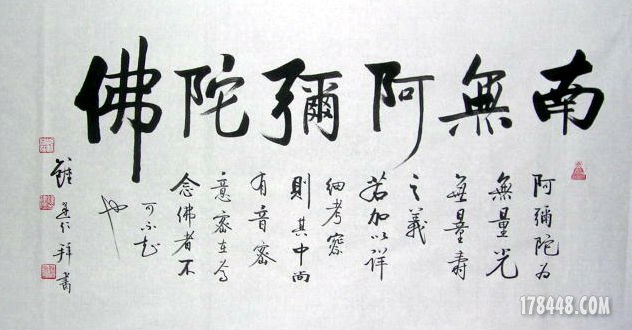 南無阿彌陀佛
阿彌陀為
無量光
無量壽
之義
若加以詳
細考察
則其中尚
有音密
意密在焉
念佛者不
可不知
也
拜書
178448.COM